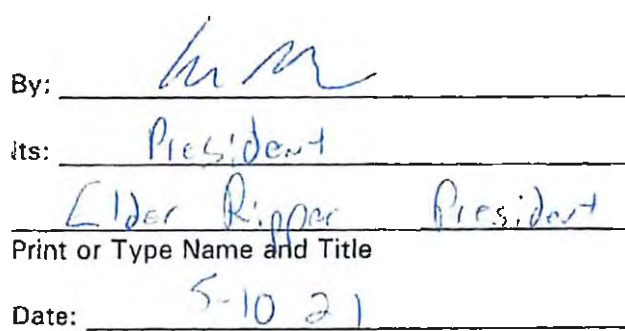 By:
Its: President
Elder Ripper President
Print or Type Name and Title
Date: 5-10 21